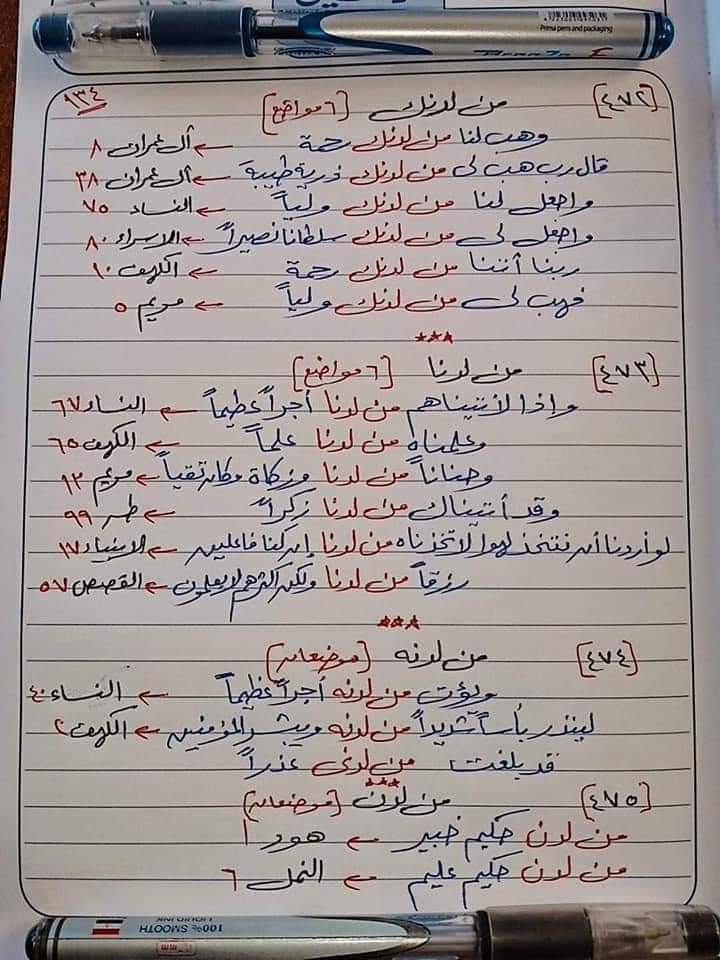 Prima pens and packaging
١٣٤
[٤٧٢] من لدنك [٦ مواضع]
وهب لنا من لدنك رحمة ← آل عمران ٨
قال رب هب لى من لدنك ذرية طيبة ← آل عمران ٣٨
واجعل لنا من لدنك ولياً ← النساء ٧٥
واجعل لى من لدنك سلطانا نصيراً ← الاسراء ٨٠
ربنا أتنا من لدنك رحمة ← الكهف ١٠
فهب لى من لدنك ولياً ← مريم ٥
***
[٤٧٣] من لدنا [٦ مواضع]
وإذا لآتيناهم من لدنا أجراً عظيماً ← النساء ٦٧
وعلمناه من لدنا علماً ← الكهف ٦٥
وحناناً من لدنا وزكاة وكان تقياً ← مريم ١٣
وقد أتيناك من لدنا زكراً ← طه ٩٩
لو أردنا أن نتخذ لهوا لاتخذناه من لدنا إن كنا فاعلين ← الانبياء ١٧
رزقاً من لدنا ولكن اكثرهم لا يعلمون ← القصص ٥٧
***
[٤٧٤] من لدنه [موضعان]
ويؤت من لدنه أجراً عظيماً ← النساء ٤٠
لينذر بأساً شديداً من لدنه ويبشر المؤمنين ← الكهف ٢
قد بلغت من لدنى عذراً
***
[٤٧٥] من لدن [موضعان]
من لدن حكيم خبير ← هود ١
من لدن حكيم عليم ← النمل ٦
100% SMOOTH
LIQUID INK